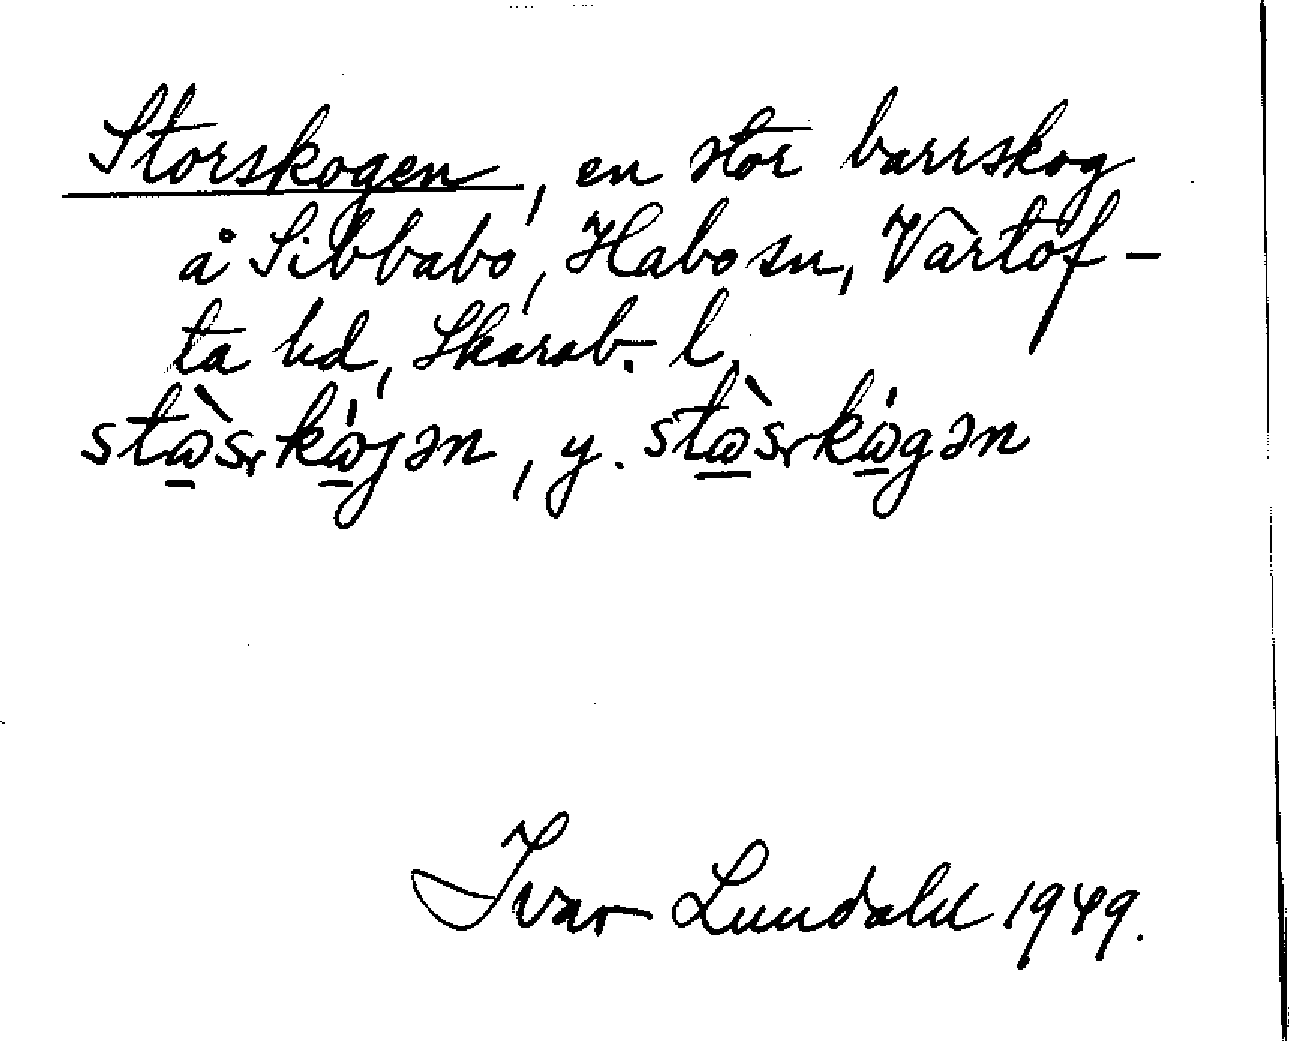 Storskogen, en stor barrskog
å Sibbabo, Habo sn, Vartof-
ta hd, Skarab. l.
stɷ̠̀srkɷ̠́jən, y. stɷ̠̀srkɷ̠́gən
Ivar Lundahl 1949.